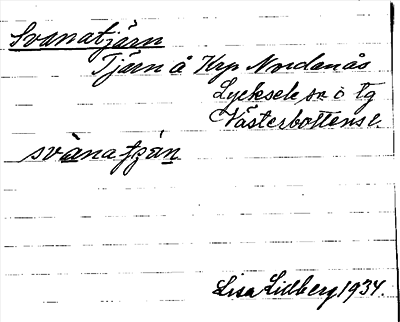 Svanatjärn
Tjärn å Krp Nordanås
Lycksele sn o tg
Västerbottens l.
svànatjä́n
Lisa Lidberg 1934.